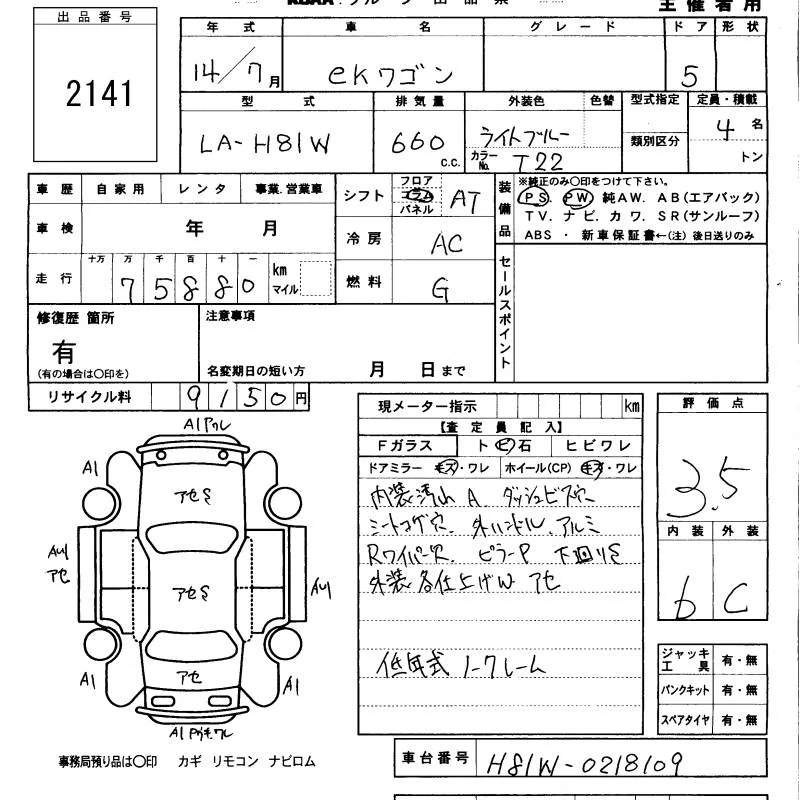 グループ 出品票
主催者用
出品番号
2141
年式 車名 グレード ドア 形状
14/7月 eKワゴン 5
型式 排気量 外装色 色替 型式指定 定員・積載
LA-H81W 660 C.C. ライトブルー 4名
カラーNo. T22 類別区分 トン
車歴 自家用 レンタ 事業.営業車
車検 年 月
走行 十万 万 千 百 十 一
75880 km マイル
シフト フロア コラム パネル AT
冷房 AC
燃料 G
装備品
※純正のみ○印をつけて下さい。
PS. PW 純AW. AB(エアバック)
TV. ナビ. カワ. SR(サンルーフ)
ABS ・ 新車保証書←(注) 後日送りのみ
セールスポイント
修復歴 箇所
有
(有の場合は○印を)
注意事項
名変期日の短い方 月 日まで
リサイクル料 9150円
現メーター指示 km
【査定員記入】
Fガラス ト ビ 石 ヒビワレ
ドアミラー キズ・ワレ ホイール(CP) キズ・ワレ
内装汚れ A ダッシュビス穴
シートコゲ穴. 外ハンドル. アルミ
Rワイパー欠. ピラーP 下回りS
外装各仕上げW アセ
低年式 ノークレーム
評価点
3.5
内装 外装
b C
ジャッキ工具 有・無
パンクキット 有・無
スペアタイヤ 有・無
A1
A1
アセS
アセ
アセS
アセ
A1
A1
事務局預り品は○印 カギ リモコン ナビロム
車台番号 H81W-0218109